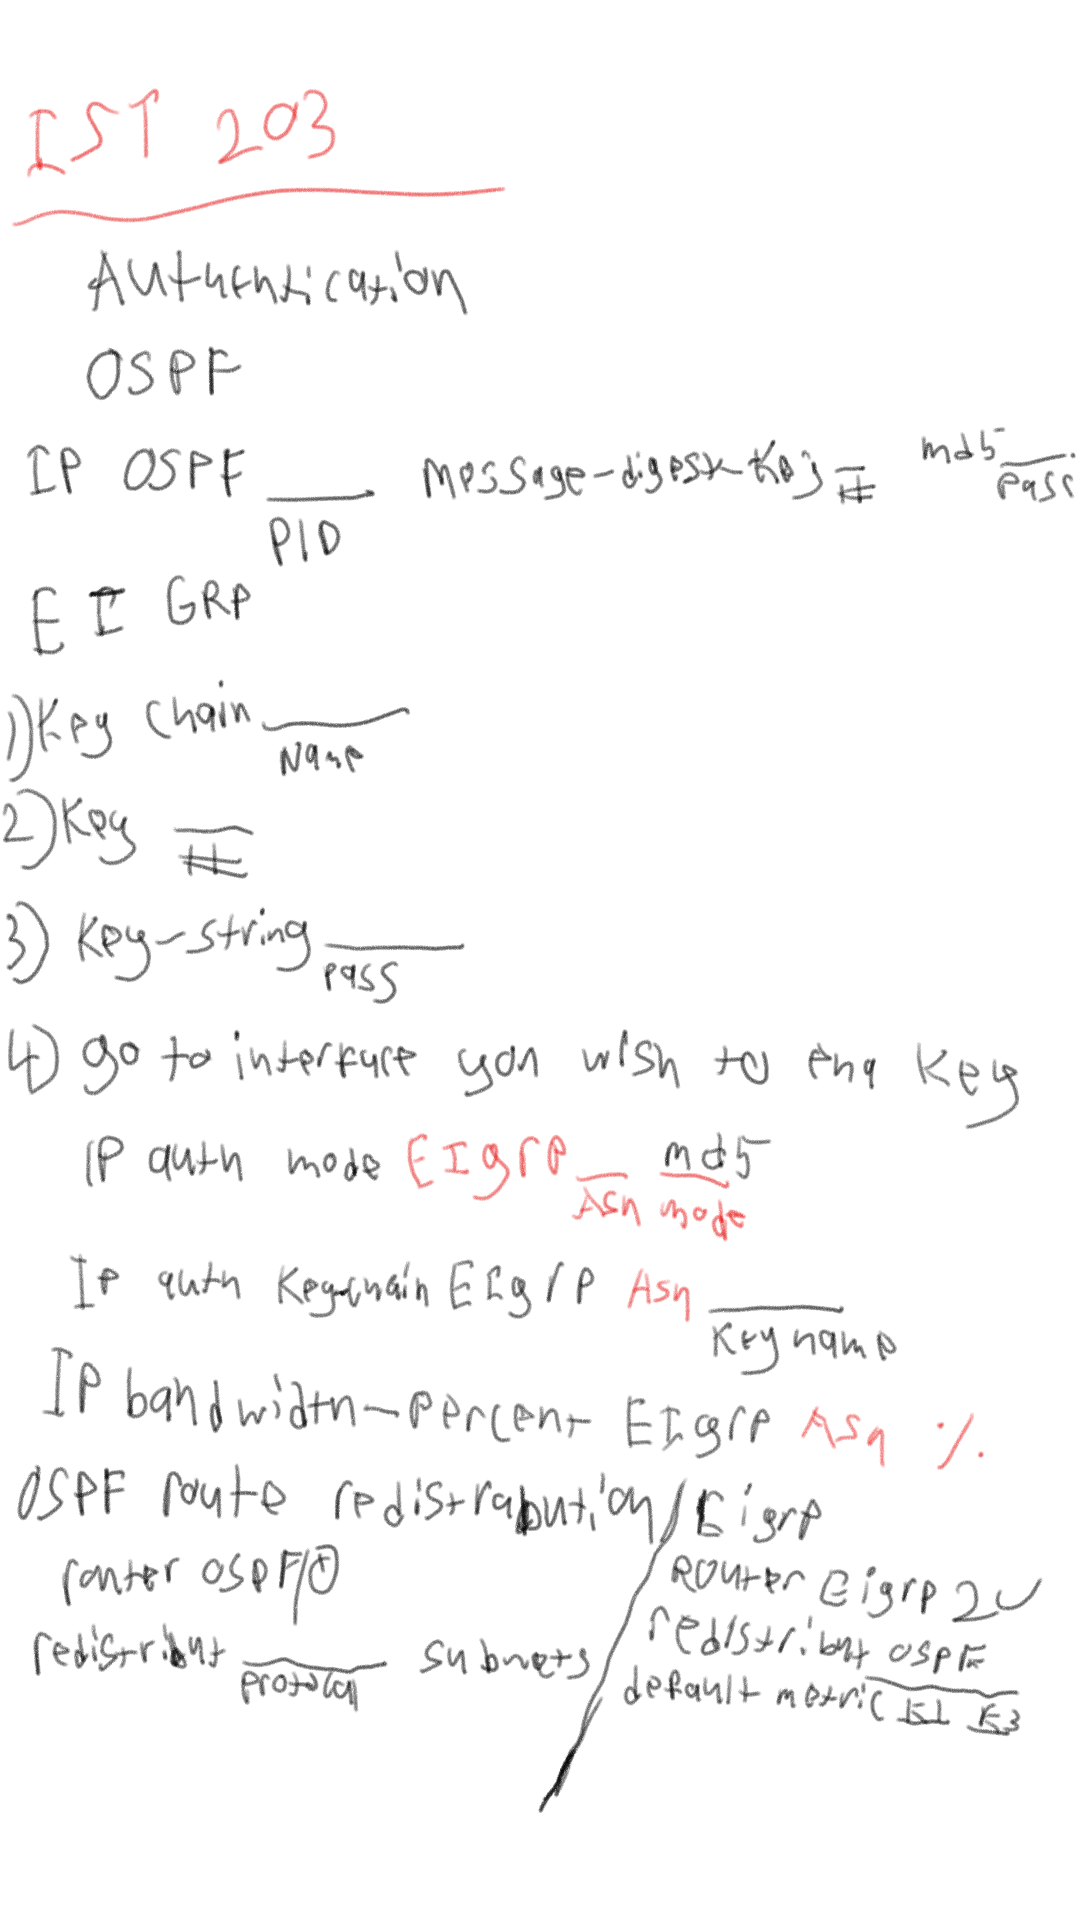 IST 203
Authentication
OSPF
IP OSPF ____ message-digest-key __ md5 ____
PID # pass
EIGRP
1) Key chain ____
Name
2) Key ____
#
3) Key-string ____
pass
4) go to interface you wish to ena key
IP auth mode EIgrp __ md5
Asn mode
IP auth Key-chain EIgrp Asn ____
Key name
IP bandwidth-percent EIgrp Asn %
OSPF route redistrabution / Eigrp
router OSPF
redistribut ____ subnets
protocol
Router Eigrp
redistribut OSPF ____
default metric K1 K3